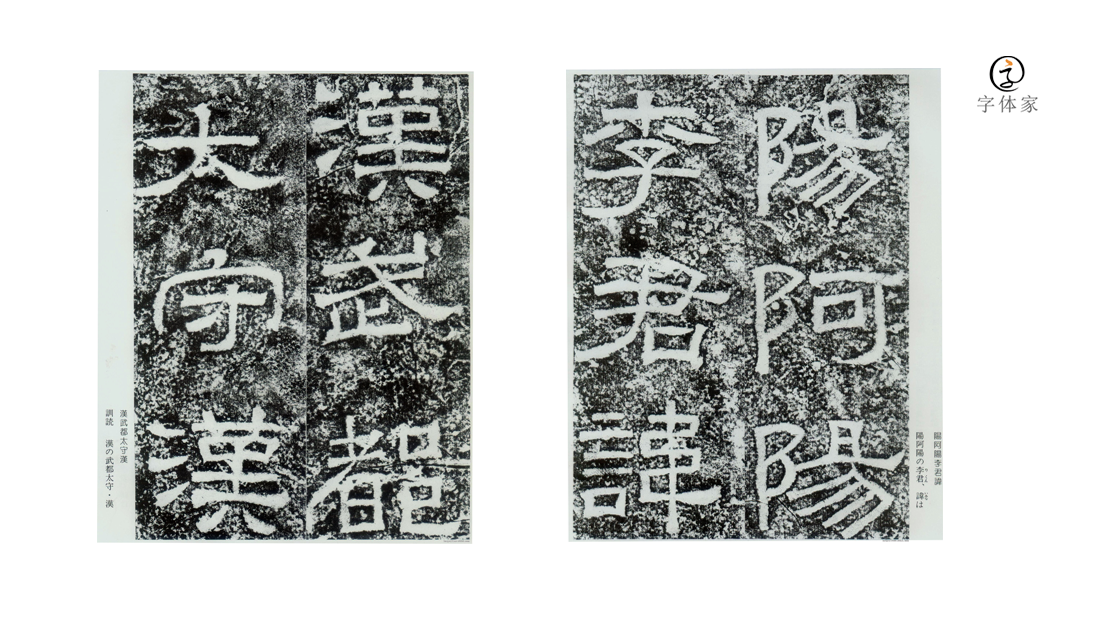 漢武都
太守漢
漢武都太守漢
訓読 漢の武都太守・漢
陽阿陽
李君諱
陽阿陽李君諱
陽阿陽の李君、諱は
字体家